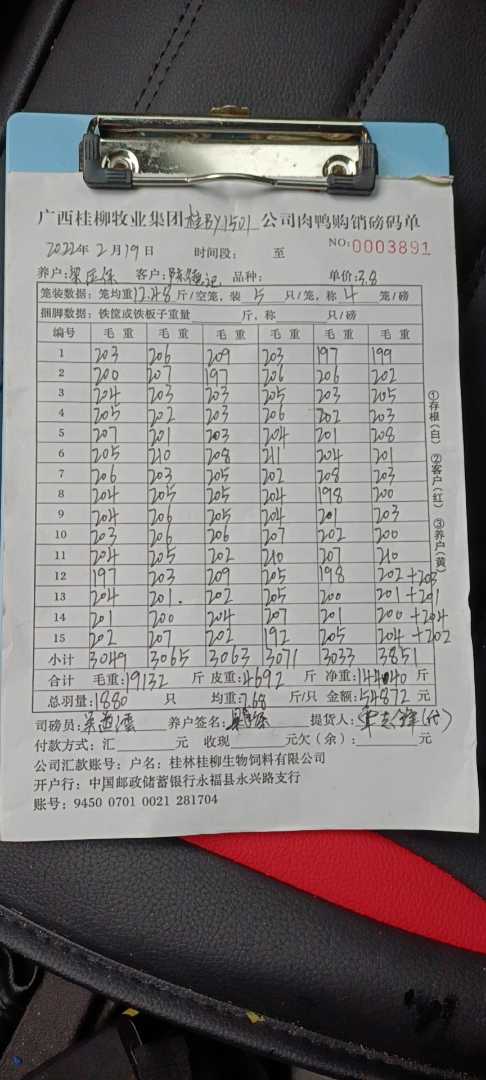 广西桂柳牧业集团桂BY1501公司肉鸭购销磅码单
2022年2月19日 时间段: 至 NO:0003891
养户: 客户: 品种: 单价:3.8
笼装数据: 笼均重12.48斤/空笼, 装5只/笼, 称4笼/磅
捆脚数据: 铁筐或铁板子重量 斤, 称 只/磅
编号 毛重 毛重 毛重 毛重 毛重 毛重
1 203 206 209 203 197 199
2 200 207 197 206 206 202
3 204 203 203 205 203 205
4 205 202 203 206 202 203
5 207 201 203 204 201 208
6 205 210 208 211 204 201
7 206 203 205 202 208 203
8 204 205 205 204 198 200
9 204 206 205 204 201 203
10 203 206 206 207 202 200
11 204 205 202 210 207 210
12 197 203 209 205 198 202+203
13 204 201. 202 205 200 201+201
14 201 200 204 207 201 200+204
15 202 207 202 192 205 204+202
小计 3049 3065 3063 3071 3033 3851
合计 毛重:19132斤 皮重:4692斤 净重:14440斤
总羽量:1880只 均重:7.68斤/只 金额:54872元
司磅员: 养户签名: 提货人:
付款方式: 汇 元 收现 元欠(余): 元
公司汇款账号: 户名: 桂林桂柳生物饲料有限公司
开户行: 中国邮政储蓄银行永福县永兴路支行
账号: 9450 0701 0021 281704
①存根(白) ②客户(红) ③养户(黄)